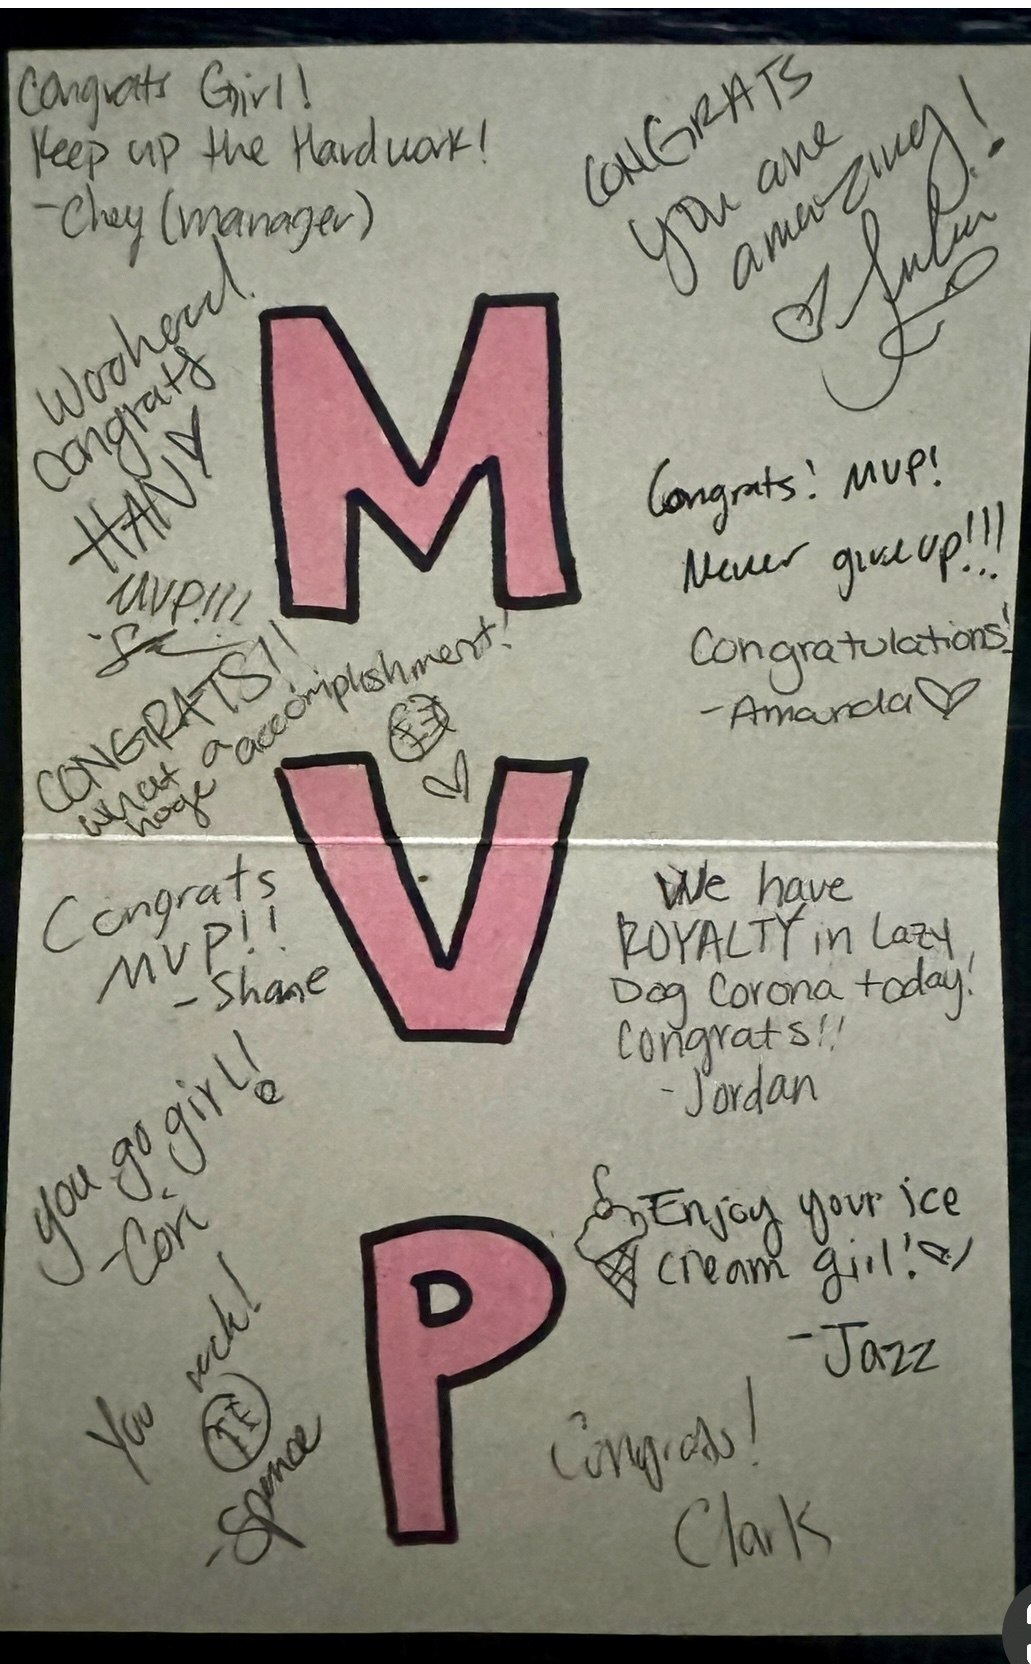 Congrats Girl!
Keep up the Hardwork!
-Chey (manager)
CONGRATS
you are
amazing!
Woohooo!
Congrats
HAN
MVP!!!
Congrats! MVP!
Never give up!!!
Congratulations!
-Amanda
CONGRATS!!
what a
huge accomplishment!
Congrats
MVP!!
-Shane
We have
ROYALTY in Lazy
Dog Corona today!
Congrats!!
-Jordan
you go girl!
-Cori
Enjoy your ice
cream girl!
-Jazz
You rock!
-Spence
Congrats!
Clark
M
V
P